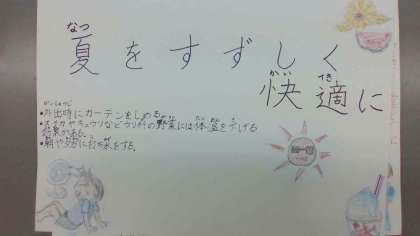 夏をすずしく
快適に
・外出時にカーテンをしめる。
・スイカやキュウリなどウリ科の野菜には体温を下げる
効果がある。
・朝や夕方に打ち水をする。